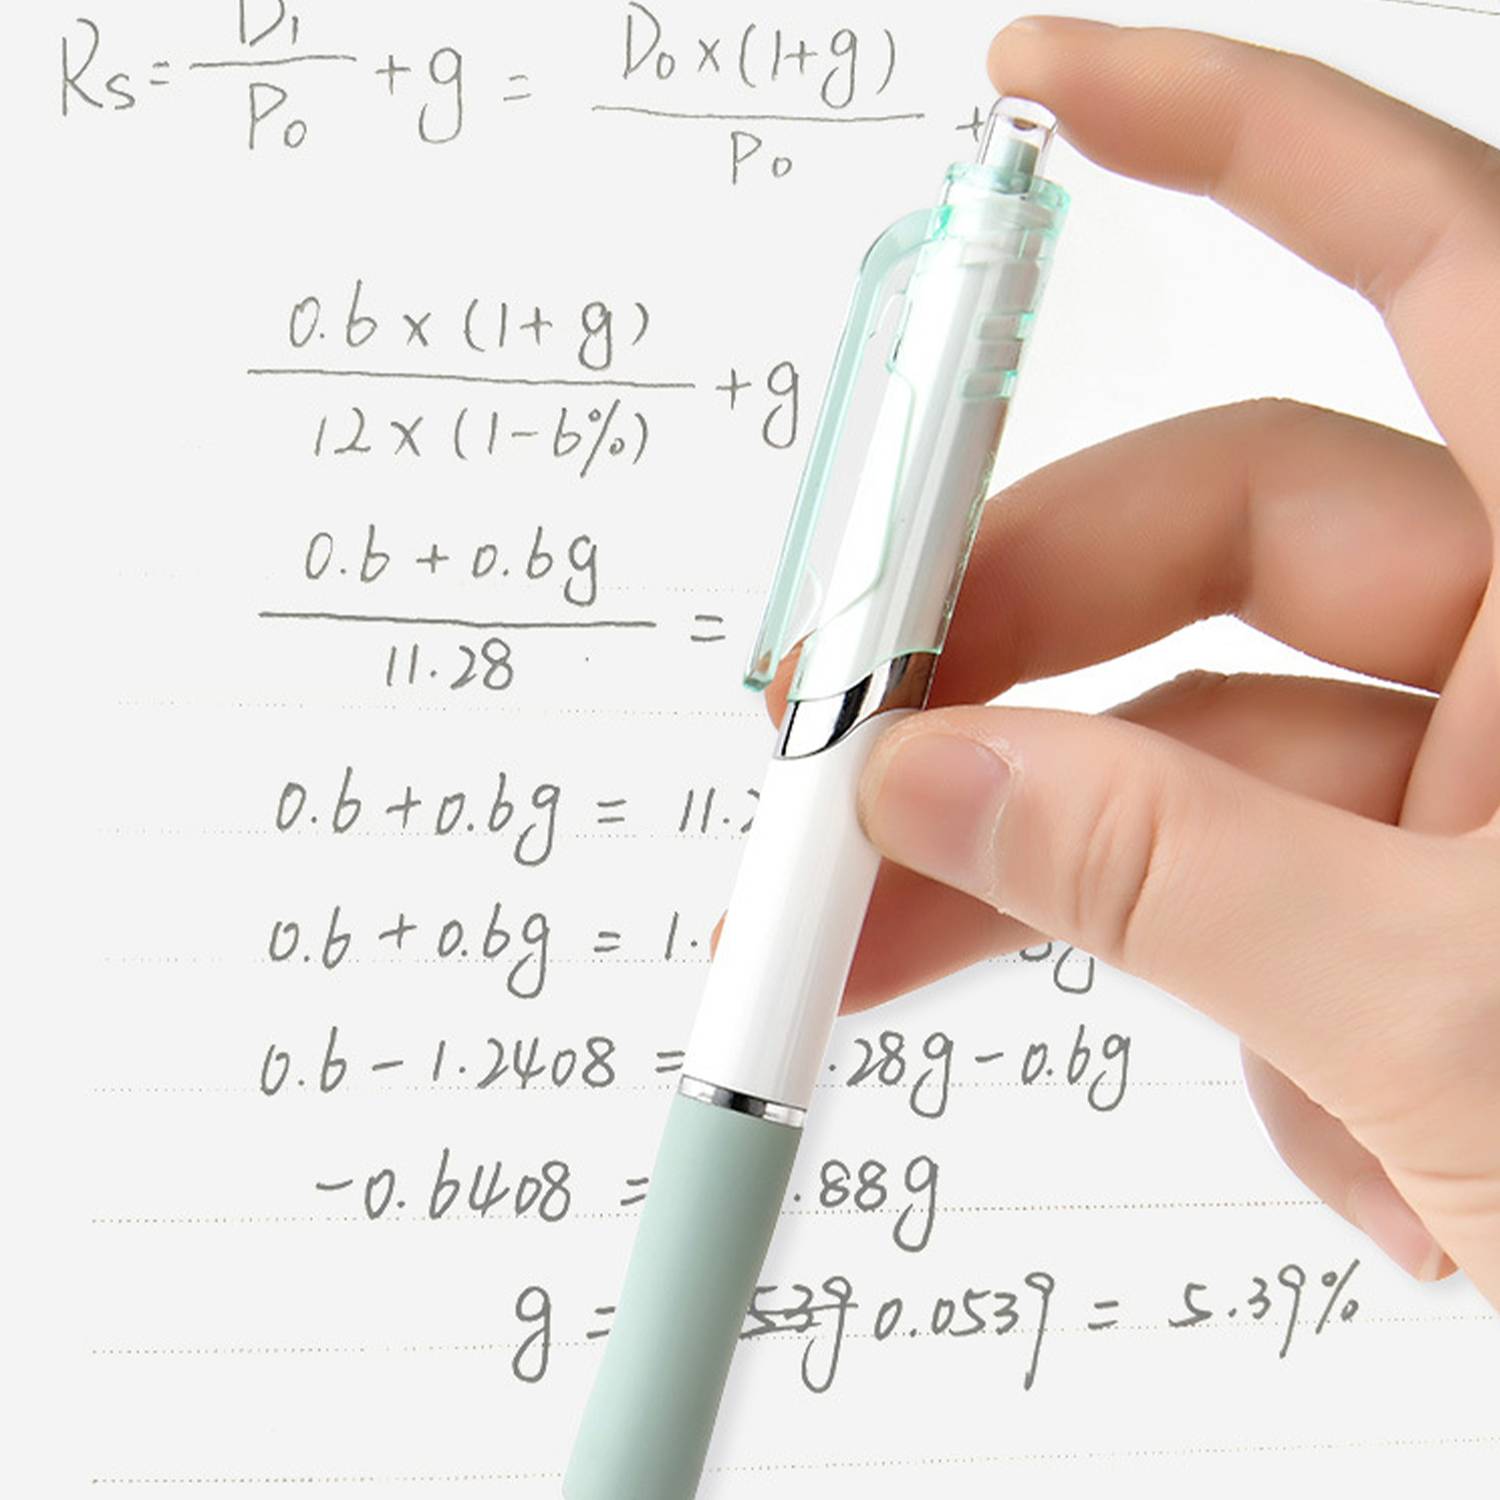 Rs = D1/P0 + g = D0×(1+g)/P0 +
0.6×(1+g)/12×(1-6%) + g
0.6+0.6g/11.28 =
0.6+0.6g = 11.2
0.6+0.6g = 1. g
0.6-1.2408 = .28g-0.6g
-0.6408 = .88g
g = 0.0539 = 5.39%